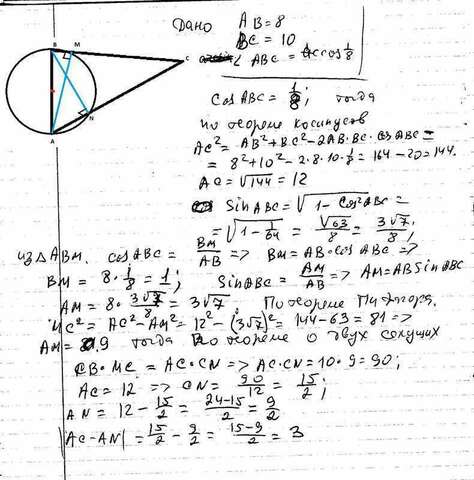 Дано AB = 8
BC = 10
∠ ABC = arccos 1/8
B M C N A
cos ABC = 1/8; тогда
по теореме косинусов
AC² = AB² + BC² - 2AB·BC·cos ABC =
= 8² + 10² - 2·8·10·1/8 = 164 - 20 = 144.
AC = √144 = 12
sin ABC = √1 - cos²ABC =
= √1 - 1/64 = √63/8 = 3√7/8;
из △ABM. cos ABC = BM/AB => BM = AB·cos ABC =>
BM = 8·1/8 = 1; sin ABC = AM/AB => AM = AB sin ABC
AM = 8·3√7/8 = 3√7. По теореме Пифагора.
MC² = AC² - AM² = 12² - (3√7)² = 144 - 63 = 81 =>
AM = 9 тогда По теореме о двух секущих
CB·MC = AC·CN => AC·CN = 10·9 = 90;
AC = 12 => CN = 90/12 = 15/2;
AN = 12 - 15/2 = 24-15/2 = 9/2
|AC-AN| = 15/2 - 9/2 = 15-9/2 = 3